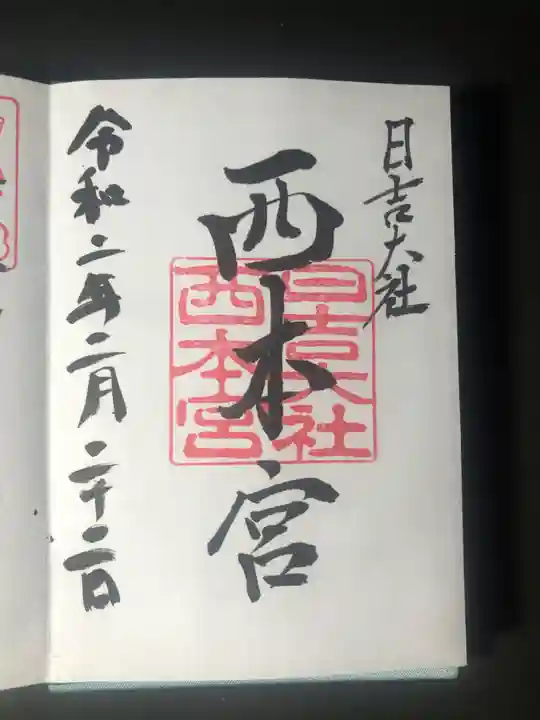 日吉大社
西本宮
日吉大社
西本宮
令和二年二月二十二日